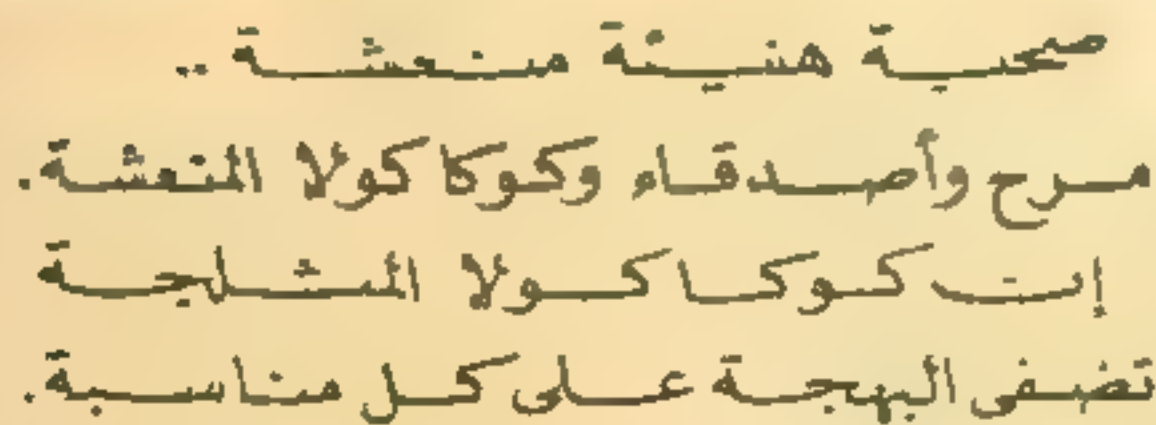 صحبة هنيئة منعشة ..
مرح وأصدقاء وكوكا كولا المنعشة .
إنت كوكا كولا المثلجة
تضفى البهجة على كل مناسبة .